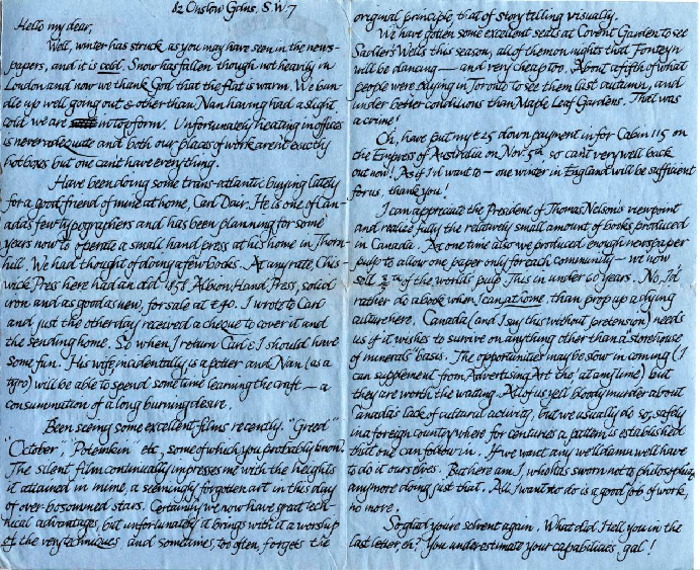 82 Onslow Gdns, S.W.7
Hello my dear,
Well, winter has struck as you may have seen in the news-
papers, and it is cold. Snow has fallen though not hearily in
London and now we thank God that the flat is warm. We bun-
dle up well going out & other than Nan having had a slight
cold we are in top form. Unfortunately heating in offices
is never adequate and both our places of work aren't exactly
hotboxes but one can't have everything.
Have been doing some trans-atlantic buying lately
for a good friend of mine at home, Carl Dair. He is one of Can-
adas few typographers and has been planning for some
years now to operate a small hand press at his home in Thorn-
hill. We had thought of doing a few books. At any rate, Chis-
wick Press here had an old 1858 Albion, Hand, Press, solid
iron and as good as new, for sale at £40. I wrote to Carl
and just the other day received a cheque to cover it and
the sending home. So when I return Carl & I should have
some fun. His wife incidentally is a potter and Nan (as a
tyro) will be able to spend some time learning the craft — a
consummation of a long burning desire.
Been seeing some excellent films recently. "Greed"
"October", "Potemkin" etc, some of which you probably know.
The silent film continually impresses me with the heights
it attained in mime, a seemingly forgotten art in this day
of over bosomed stars. Certainly we now have great tech-
nical advantages, but unfortunately it brings with it a worship
of the very techniques and sometimes, too often, forgets the
original principle that of story telling visually.
We have gotten some excellent seats at Covent Garden to see
Sadlers Wells this season, all of them on nights that Fonteyn
will be dancing — and very cheap too. About a fifth of what
people were paying in Toronto to see them last autumn, and
under better conditions than Maple Leaf Gardens. That was
a crime!
Oh, have put my £25 down payment in for Cabin 115 on
the Empress of Australia on Nov 5th, so can't very well back
out now! As if I'd want to — one winter in England will be sufficient
for us, thank you!
I can appreciate the President of Thomas Nelson's viewpoint
and realize fully the relatively small amount of books produced
in Canada. At one time also we produced enough newspaper
pulp to allow one paper only for each community — we now
sell of the world's pulp. This in under 60 years. No, I'd
rather do a book when I can, at home, than prop up a dying
culture here. Canada (and I say this without pretension) needs
us if it wishes to survive on anything other than a storehouse
of minerals' basis. The opportunities may be slow in coming (I
can supplement from Advertising Art tho' at any time) but
they are worth the wading. All of us yell bloody murder about
Canada's lack of cultural activity, but we usually do so, safely
in a foreign country where for centuries a pattern is established
that one can follow in. If we want any we'll damn well have
to do it ourselves. But here am I, who has sworn not to philosophize
anymore doing just that. All I want to do is a good job of work,
no more.
So glad you're solvent again. What did I tell you in the
last letter eh? You underestimate your capabilities, gal!